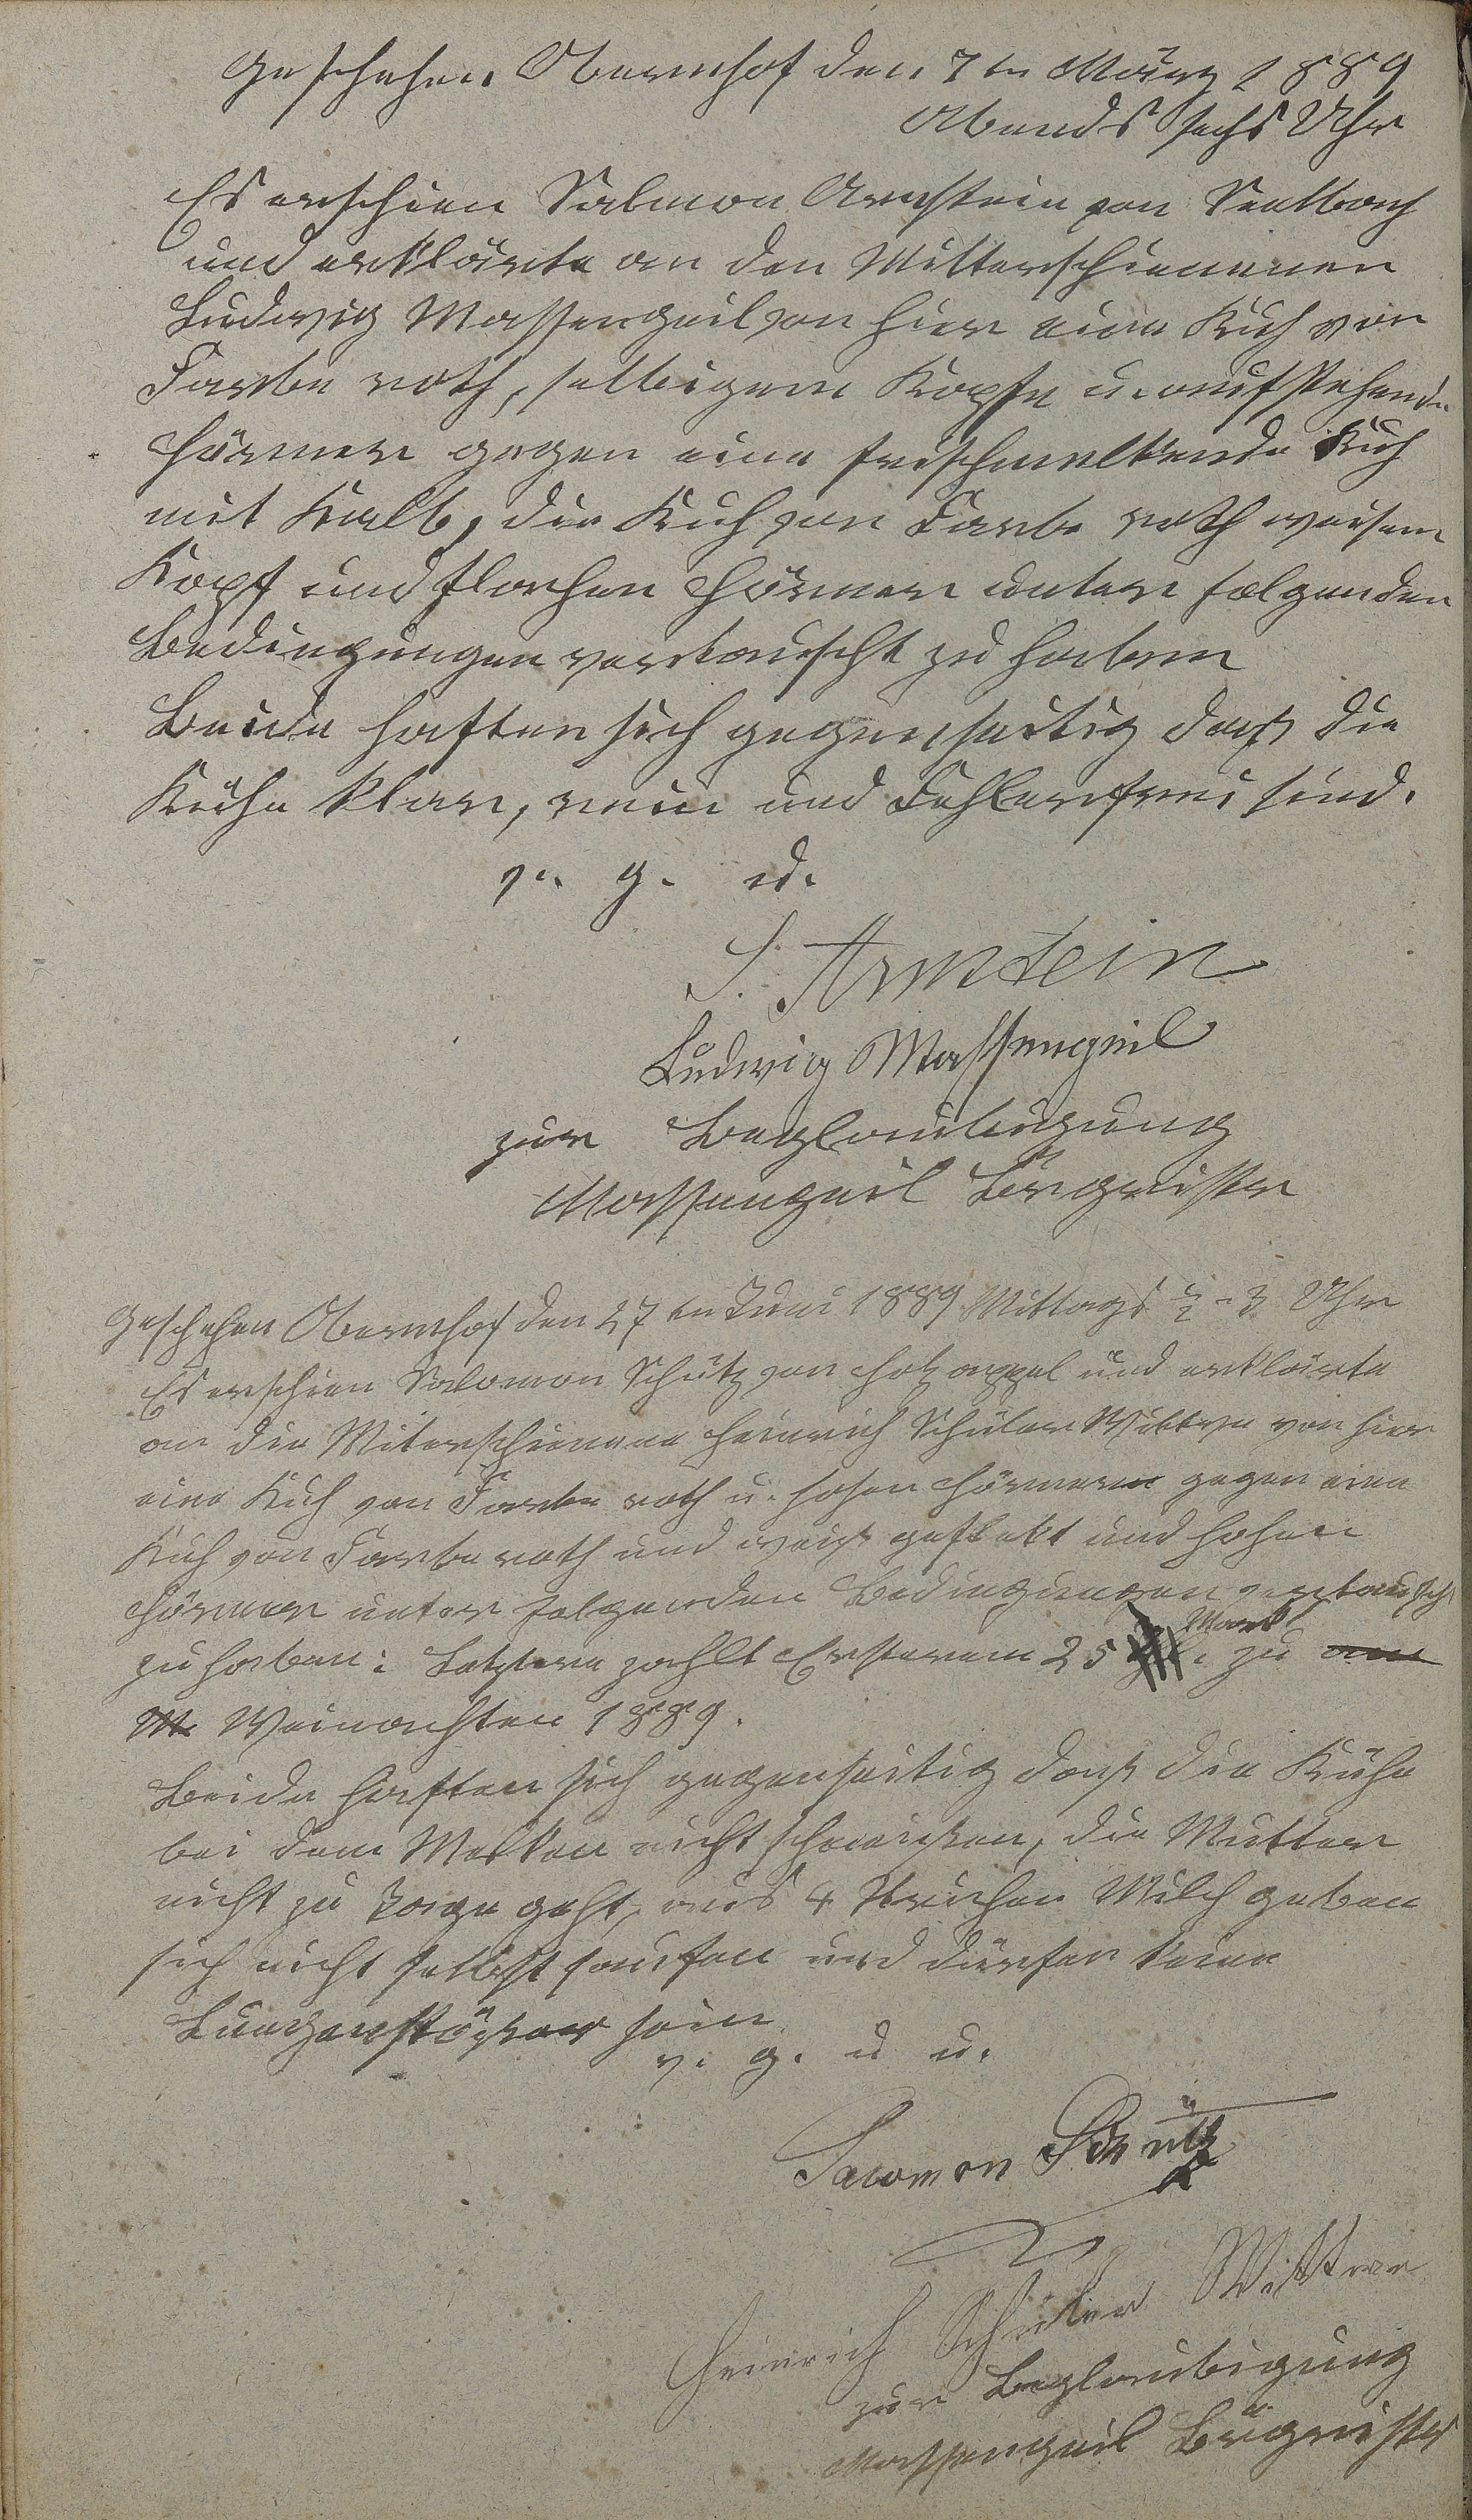 Geschehen Obernhof den 7ten März 1889
Abends sechs Uhr
Es erschien Salmon Arnstein von Seelbach
und erklärte an den Mitterschienenen
Ludwig Massengeil von hier eine Kuh von
Farbe roth, selbigem Kopfe u. aufstehende
Hörner gegen eine frischmelkende Kuh
mit Kalb, die Kuh von Farbe roth weisem
Kopf und flachen Hörner unter folgenden
Bedingungen vertauscht zu haben
Beide haften sich gegenseitig daß die
Kühe klar, rein und Fehlerfrei sind.
v. g. u.
S. Arnstein
Ludwig Massengeil
zur Beglaubigung
Massengeil Bürgmstr
Geschehen Obernhof den 27ten Juni 1889 Mittags ½ 3 Uhr
Es erschien Salomon Schütz von Holzappel und erklärte
an die Miterschienene Heinrich Schüler Wittwe von hier
eine Kuh von Farbe roth u. hohen Hörnern gegen eine
Kuh von Farbe roth und weiß geflekt und hohen
Hörner unter folgenden Bedingungen vertauscht
zu haben: Letztere zahlt Ersterem 25 Mark zu
Weinachten 1889.
Beide haften sich gegenseitig daß die Kühe
bei dem Melken nicht schmeißen, die Mutter
nicht zu Tage geht, aus 4 Strichen Milch geben
sich nicht selbst saufen und dürfen keine
Lungenstößer sein.
v. g. u u.
Salomon Schütz
Heinrich Schüler Wittwe
zur Beglaubigung
Massengeil Bürgmstr